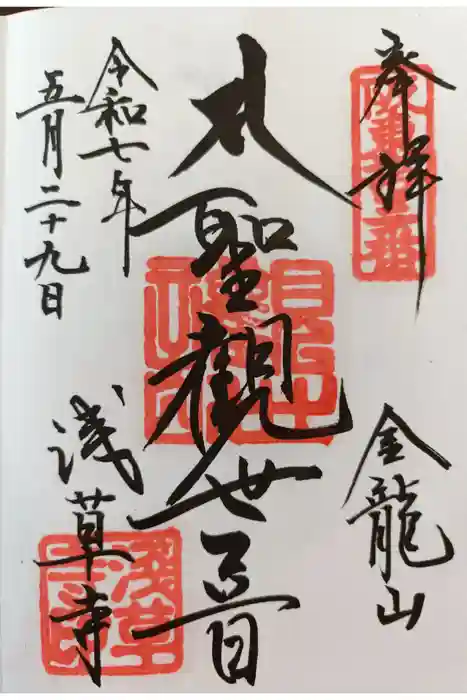 奉拝
金龍山
大聖観世音
令和七年
五月二十九日
浅草寺
浅草寺